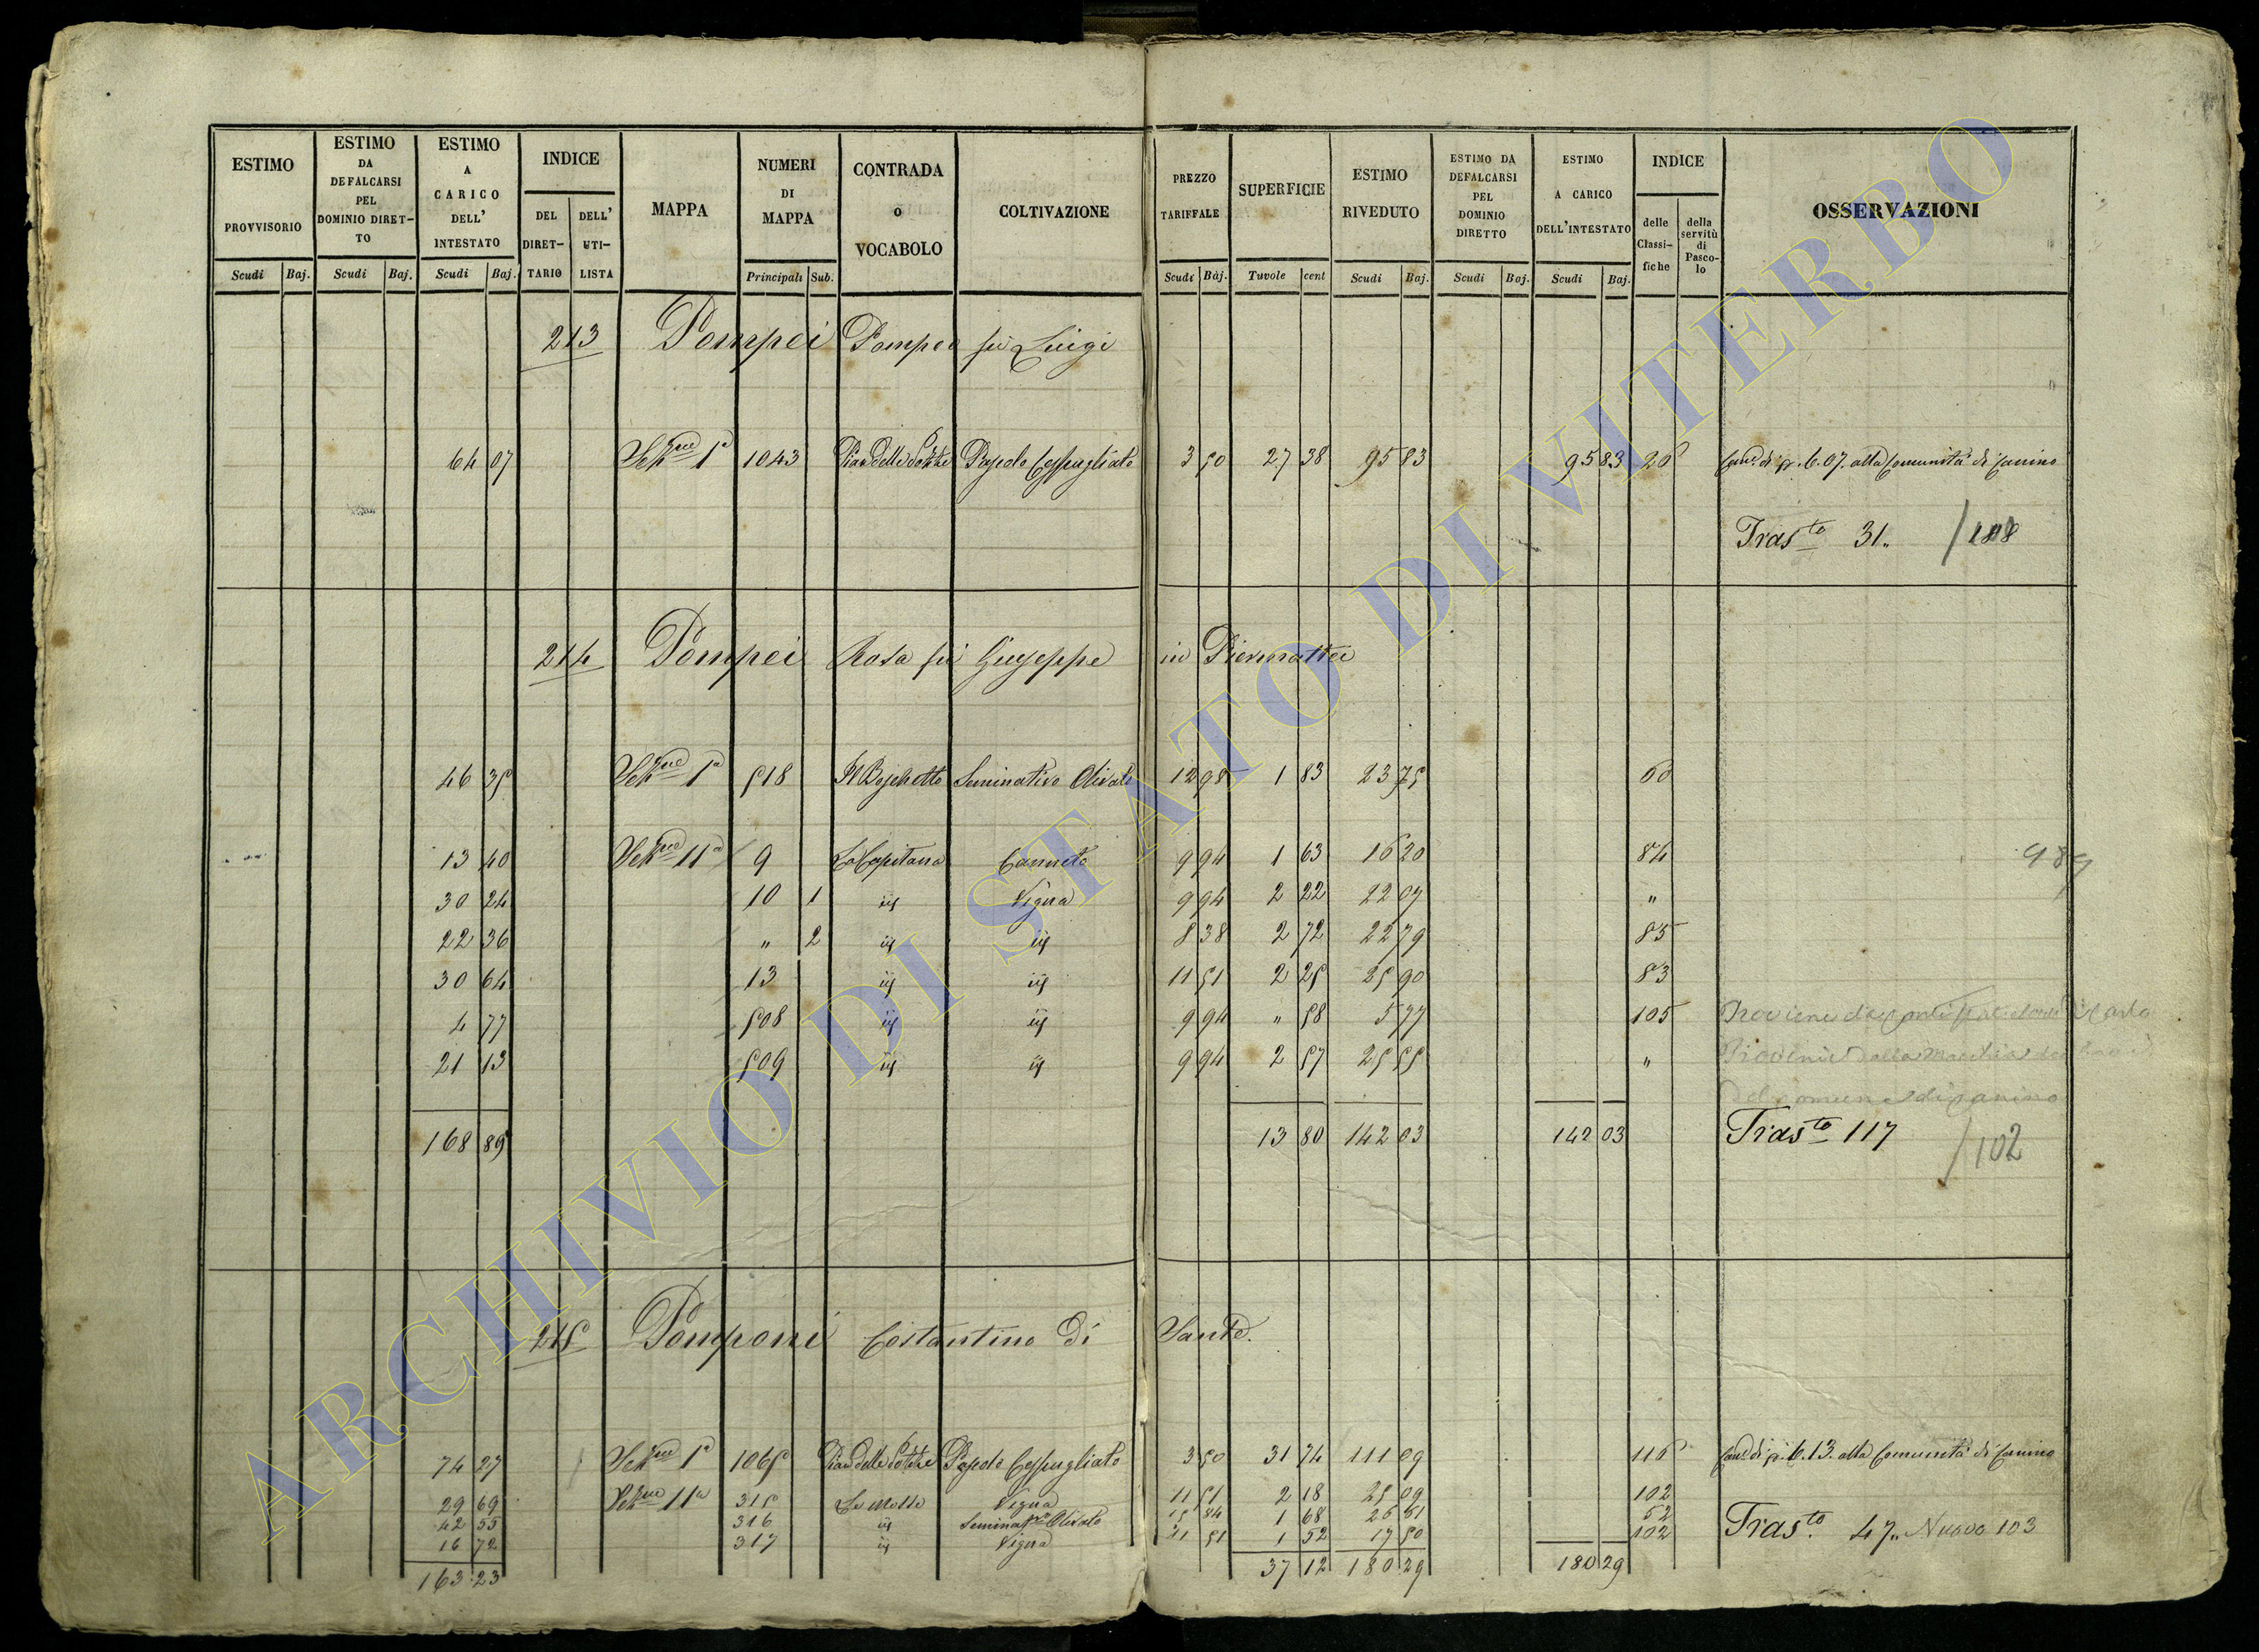 ESTIMO PROVVISORIO
ESTIMO DA DEFALCARSI PEL DOMINIO DIRET-TO
ESTIMO A CARICO DELL' INTESTATO
INDICE
DEL DIRET-TARIO
DELL' UTI-LISTA
MAPPA
NUMERI DI MAPPA
CONTRADA o VOCABOLO
COLTIVAZIONE
PREZZO TARIFFALE
SUPERFICIE
ESTIMO RIVEDUTO
ESTIMO DA DEFALCARSI PEL DOMINIO DIRETTO
ESTIMO A CARICO DELL'INTESTATO
INDICE
delle Classi-fiche
della servitù di Pasco-lo
OSSERVAZIONI
Scudi Baj. Scudi Baj. Scudi Baj. Principali Sub. Scudi Baj. Tavole cent Scudi Baj. Scudi Baj. Scudi Baj.
213 Pompei Pompeo fù Luigi
64 07 Sez.ne 1a 1043 Pian delle Pascolo Cespugliato 3 50 27 38 95 83 95 83 26 di p. 6.07. alla Comunità di Canino
Tras.to 31.. /108
214 Pompei Rosa fù Giuseppe in Piermattei
46 35 Sez.ne 1a 518 Il Boschetto Seminativo Olivato 12 98 1 83 23 75 60
13 40 Sez.ne 11a 9 La Capitana Canneto 9 94 1 63 16 20 84
989
30 24 10 1 iis Vigna 9 94 2 22 22 07 "
22 36 " 2 iis iis 8 38 2 72 22 79 85
30 64 13 iis iis 11 51 2 25 25 90 83
4 77 508 iis iis 9 94 " 58 5 77 105 Proviene da
21 13 509 iis iis 9 94 2 57 25 55 " Proviene dalla Macchia
del comune di Canino
168 89 13 80 142 03 142 03 Tras.to 117 /102
215 Pomponi Costantino di Sante.
74 27 Sez.ne 1a 1065 Pian delle Pascolo Cespugliato 3 50 31 74 111 09 116 di p. 6.13. alla Comunità di Canino
29 69 Sez.ne 11a 315 Le Motte Vigna 11 51 2 18 25 09 102
42 55 316 iis Seminat.vo Olivato 15 84 1 68 26 61 52
16 72 317 iis Vigna 11 51 1 52 17 50 102 Tras.to 47.. Nuovo 103
163 23 37 12 180 29 180 29
ARCHIVIO DI STATO DI VITERBO